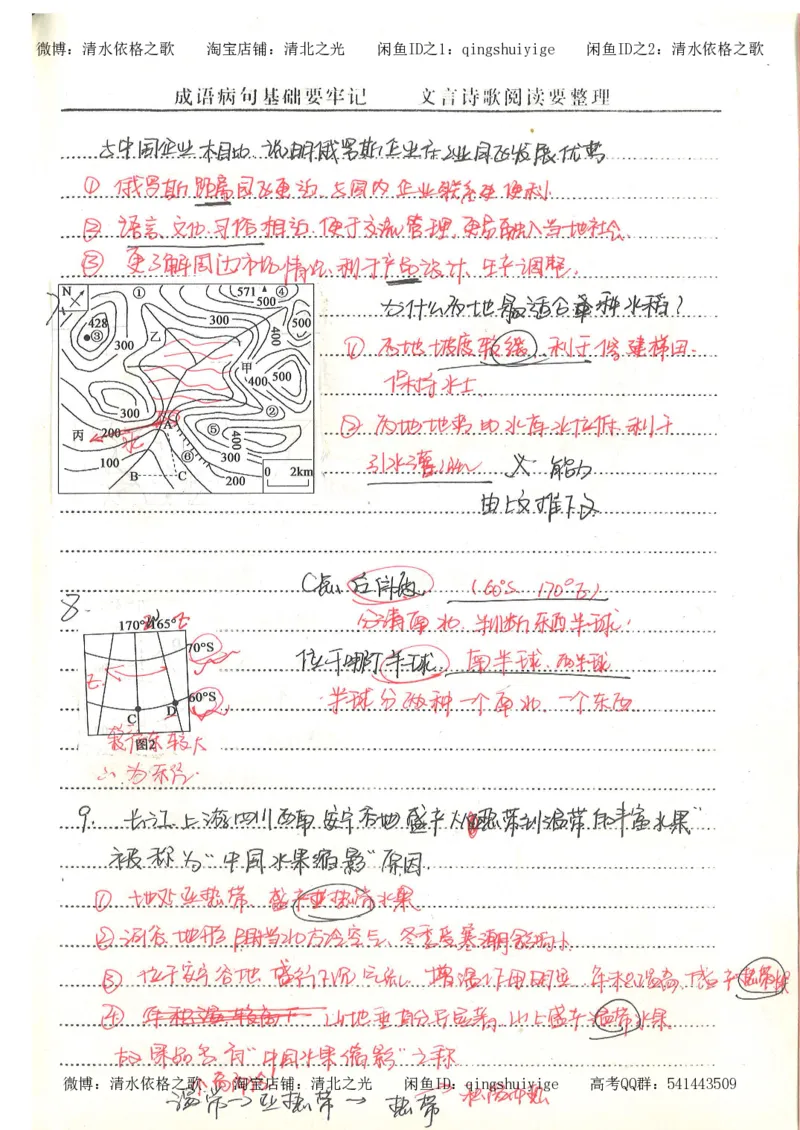 微博：清水依格之歌 淘宝店铺：清北之光 闲鱼ID之1：qingshuiyige 闲鱼ID之2：清水依格之歌
成语病句基础要牢记 文言诗歌阅读要整理
与中国企业相比，说明俄罗斯企业在业国的发展优势
① 俄罗斯距离国更近，与国内企业联系更便利.
② 语言、文化、习俗相近，便于交流管理，更易融入当地社会.
③ 更了解周边市场情况，利于产品设计、生产调整.
N ① 571 ④ 500
428 ③ 300 乙 300 400 500
甲 400 500
300 ②
丙 200 A ⑤ 400
水
100 ⑥ 300
B C 200
0 2km
为什么丙地最适合种水稻？
① 丙地坡度较缓，利于修建梯田.
保持水土.
② 丙地地势
引水灌溉
由上文推下文
8.
C点 (60°S 170°E)
分清南北，判断东西半球.
位于哪个半球 南半球、西半球
半球分两种一个南北，一个东西
170° 165°
E
70°S
60°S
C D
图2
越往东较大
∴为东经.
9. 长江上游四川西南安宁谷地盛产从热带到温带的丰富水果
被称为“中国水果缩影”原因.
① 地处亚热带，盛产亚热带水果
② 河谷地形阻挡北方冷空气，冬季受寒潮影响小
③ 位于安宁谷地，盛行下沉气流，增温作用明显，年积温高，盛产热带水果
④ 山地垂直分异显著，山上盛产温带水果
故果品名有“中国水果缩影”之称
微博：清水依格之歌 淘宝店铺：清北之光 闲鱼ID：qingshuiyige 高考QQ群：541443509
温带→亚热带→热带